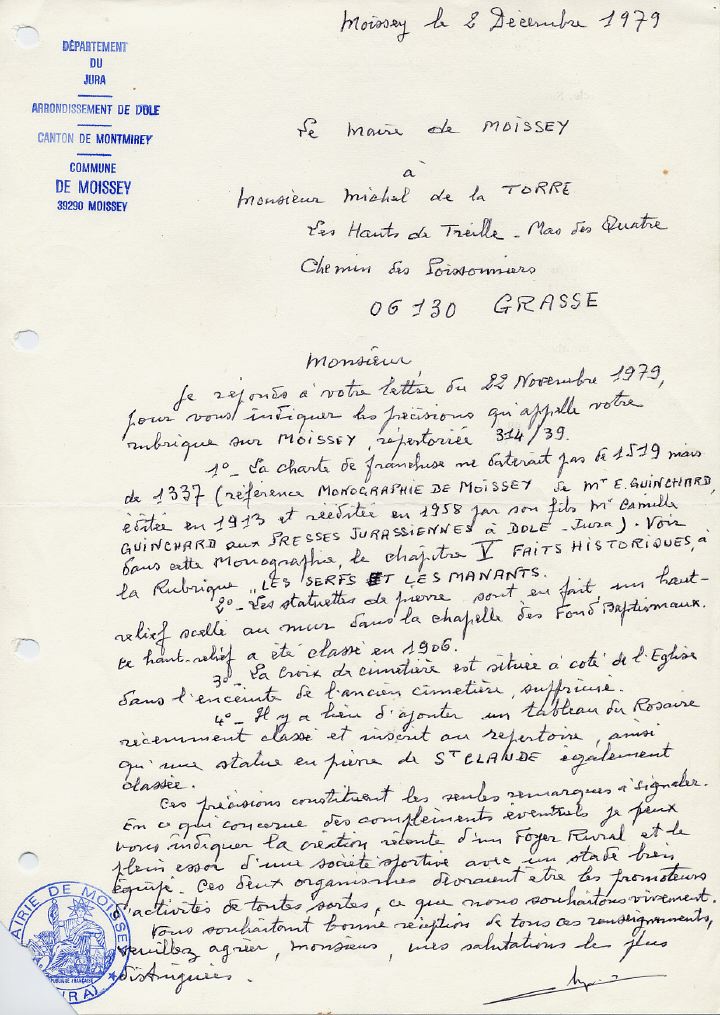 Moissey le 2 Décembre 1979
DÉPARTEMENT
DU
JURA
ARRONDISSEMENT DE DOLE
CANTON DE MONTMIREY
COMMUNE
DE MOISSEY
39290 MOISSEY
Le Maire de MOISSEY
à
Monsieur Michel de la TORRE
Les Hauts de Treille - Mas des Quatre
Chemin des Poissonniers
06130 GRASSE
Monsieur,
Je réponds à votre lettre du 22 Novembre 1979,
pour vous indiquer les précisions qu'appelle votre
rubrique sur MOISSEY, répertoriée 314/39.
1º- La charte de franchise ne daterait pas de 1519 mais
de 1337 (référence MONOGRAPHIE DE MOISSEY de Mr E. GUINCHARD,
éditée en 1913 et rééditée en 1958 par son fils Mr Camille
GUINCHARD aux PRESSES JURASSIENNES à DOLE - Jura). Voir
dans cette Monographie, le chapitre V FAITS HISTORIQUES, à
la Rubrique "LES SERFS ET LES MANANTS.
2º- Les statuettes de pierre sont en fait, un haut-
relief scellé au mur dans la chapelle des Fonds Baptismaux.
Ce haut-relief a été classé en 1906.
3º- La croix de cimetière est située à coté de l'Eglise
dans l'enceinte de l'ancien cimetière, supprimé.
4º- Il y a lieu d'ajouter un tableau du Rosaire
récemment classé et inscrit au repertoire, ainsi
qu'une statue en pierre de St CLAUDE également
classée.
Ces précisions constituent les seules remarques à signaler.
En ce qui concerne des compléments éventuels je peux
vous indiquer la création récente d'un Foyer Rural et le
plein essor d'une société sportive avec un stade bien
équipé. Ces deux organismes devraient etre les promoteurs
d'activités de toutes sortes, ce que nous souhaitons vivement.
Vous souhaitant bonne réception de tous ces renseignements,
veuillez agréer, Monsieur, mes salutations les plus
distinguées.
MAIRIE DE MOISSEY
RÉPUBLIQUE FRANÇAISE
(JURA)